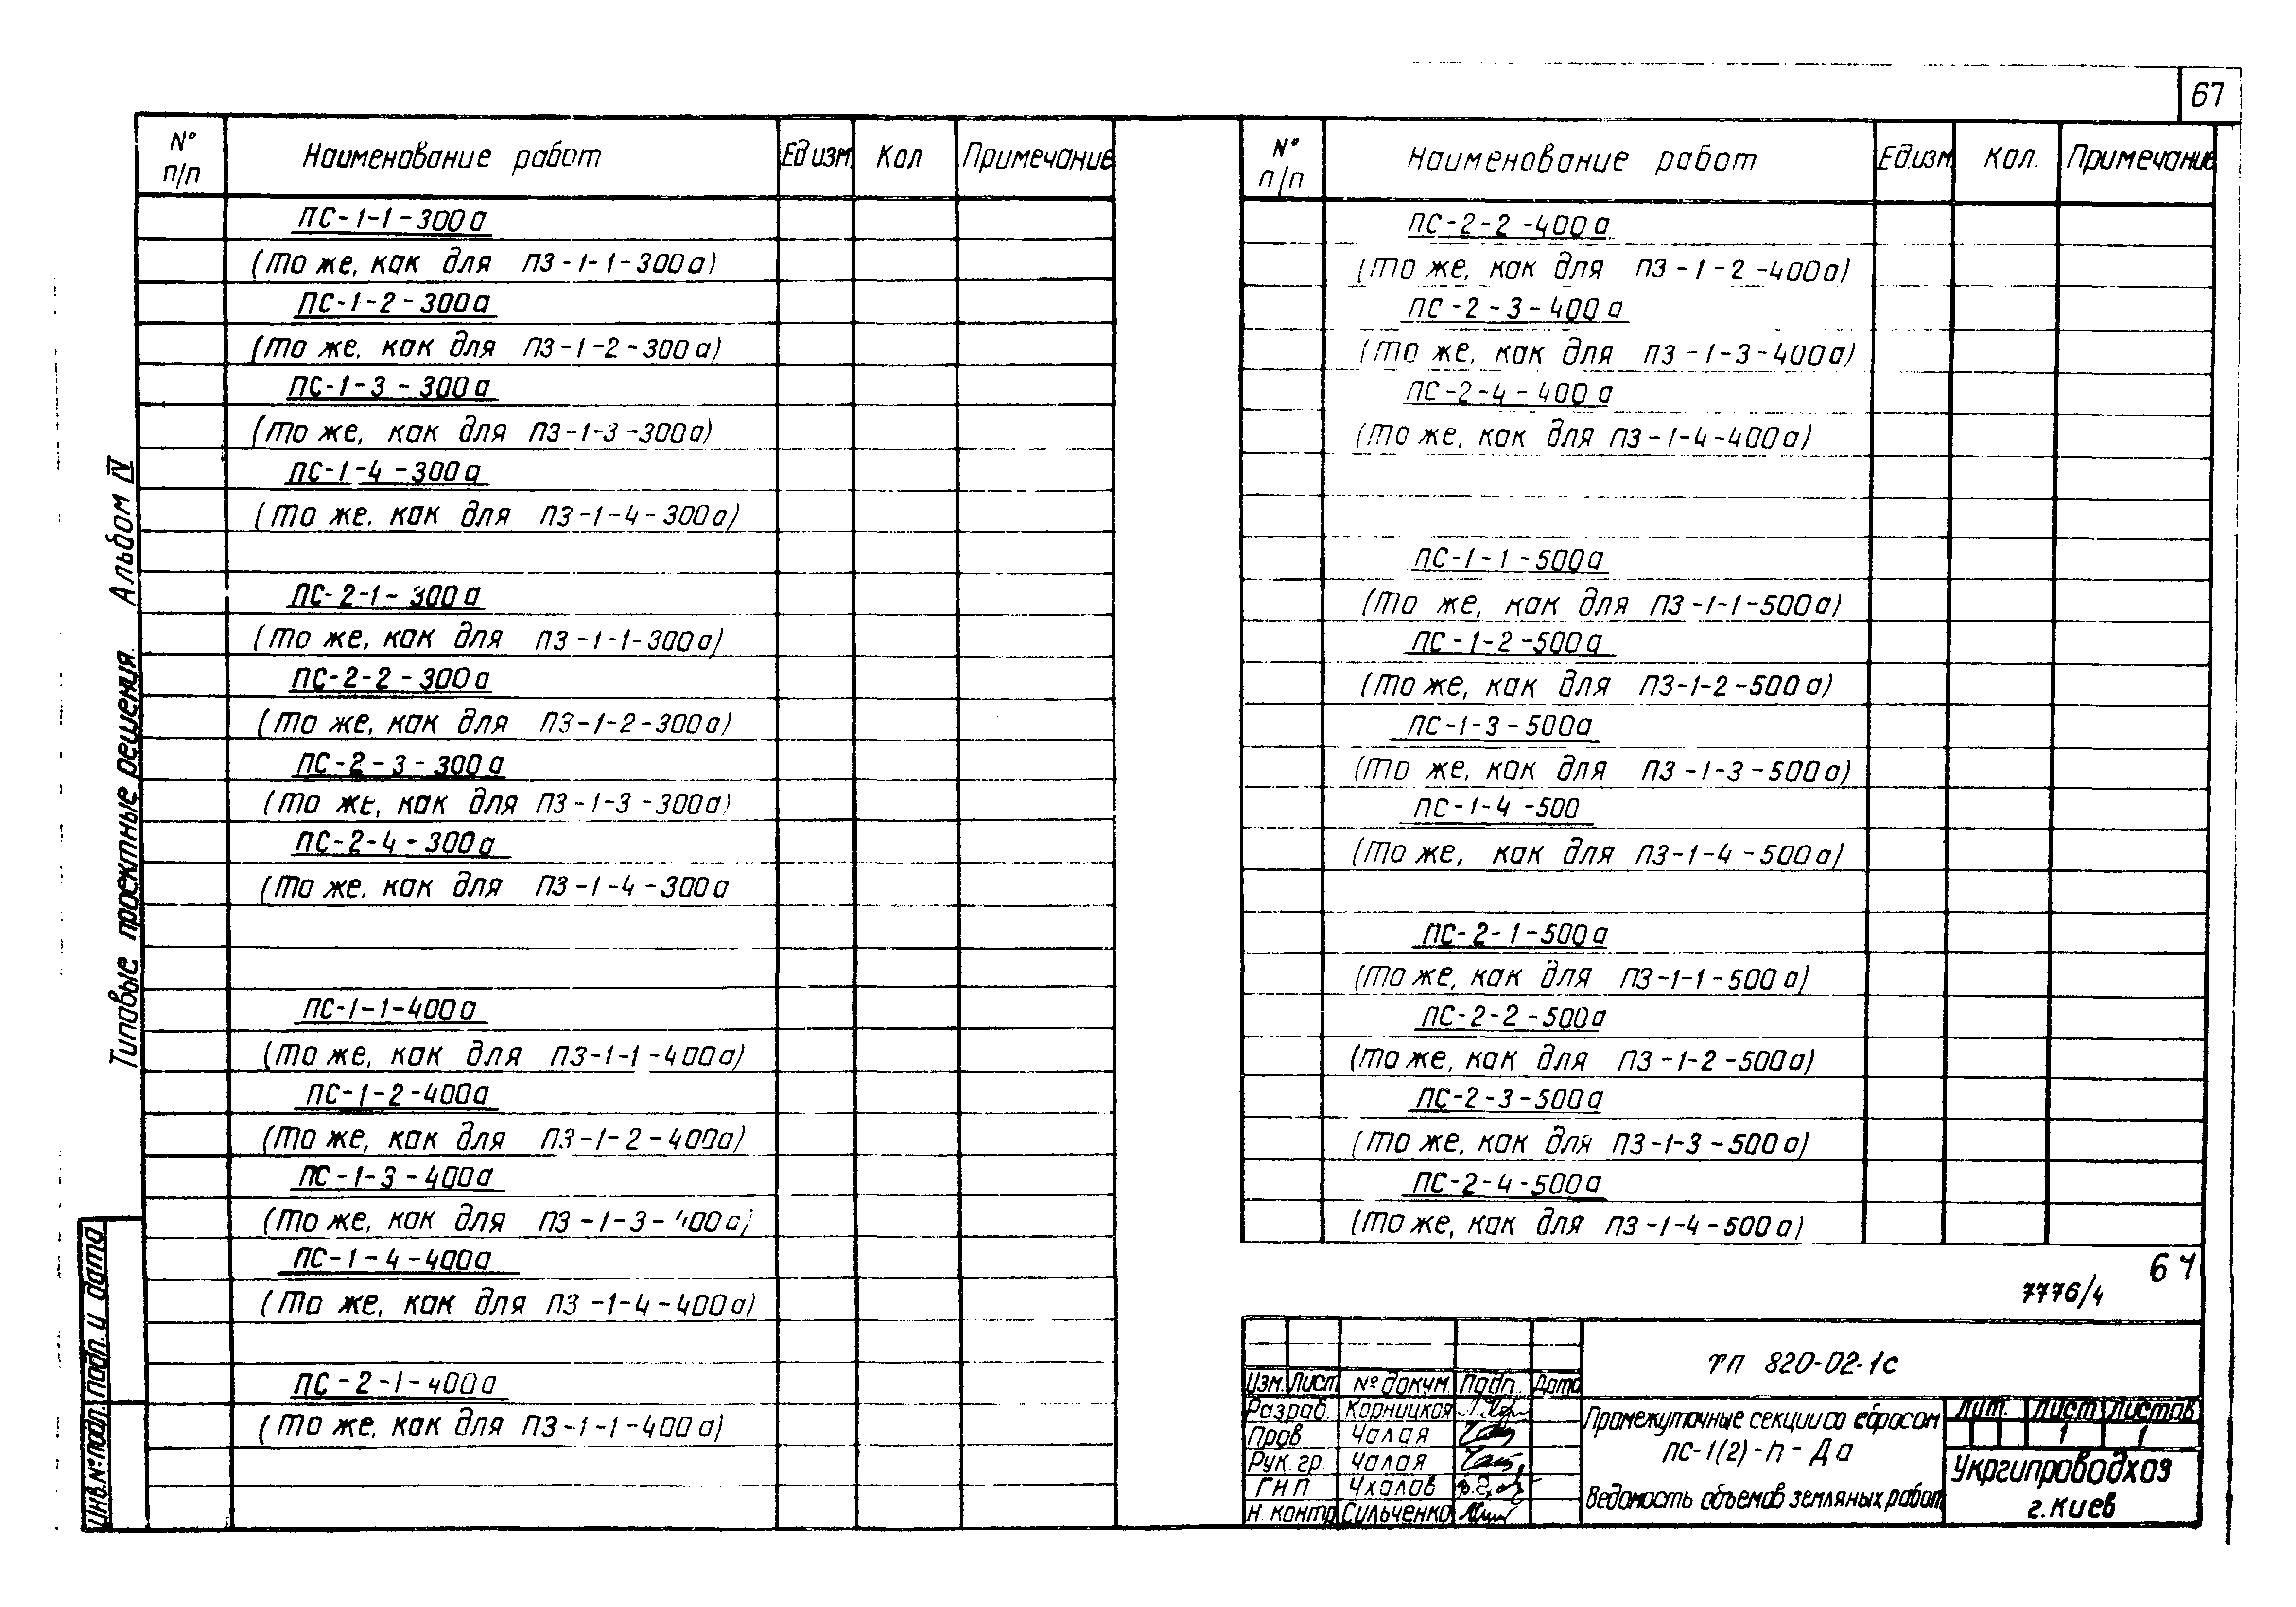 67
№ п/п Наименование работ Ед изм Кол Примечание
ПС-1-1-300а
(то же, как для ПЗ-1-1-300а)
ПС-1-2-300а
(то же, как для ПЗ-1-2-300а)
ПС-1-3-300а
(то же, как для ПЗ-1-3-300а)
ПС-1-4-300а
(то же, как для ПЗ-1-4-300а)
ПС-2-1-300а
(то же, как для ПЗ-1-1-300а)
ПС-2-2-300а
(то же, как для ПЗ-1-2-300а)
ПС-2-3-300а
(то же, как для ПЗ-1-3-300а)
ПС-2-4-300а
(то же, как для ПЗ-1-4-300а
ПС-1-1-400а
(то же, как для ПЗ-1-1-400а)
ПС-1-2-400а
(то же, как для ПЗ-1-2-400а)
ПС-1-3-400а
(то же, как для ПЗ-1-3-400а)
ПС-1-4-400а
(то же, как для ПЗ-1-4-400а)
ПС-2-1-400а
(то же, как для ПЗ-1-1-400а)
№ п/п Наименование работ Ед.изм. Кол. Примечание
ПС-2-2-400а
(то же, как для ПЗ-1-2-400а)
ПС-2-3-400а
(то же, как для ПЗ-1-3-400а)
ПС-2-4-400а
(то же, как для ПЗ-1-4-400а)
ПС-1-1-500а
(то же, как для ПЗ-1-1-500а)
ПС-1-2-500а
(то же, как для ПЗ-1-2-500а)
ПС-1-3-500а
(то же, как для ПЗ-1-3-500а)
ПС-1-4-500
(то же, как для ПЗ-1-4-500а)
ПС-2-1-500а
(то же, как для ПЗ-1-1-500а)
ПС-2-2-500а
(то же, как для ПЗ-1-2-500а)
ПС-2-3-500а
(то же, как для ПЗ-1-3-500а)
ПС-2-4-500а
(то же, как для ПЗ-1-4-500а)
Типовые проектные решения. Альбом IV
Инв.№подл. Подп. и дата
67
7776/4
ТП 820-02-1с
Изм. Лист № докум. Подп. Дата
Разраб. Корницкая
Пров Чалая
Рук. гр. Чалая
ГНП Чхалов
Н. контр Сильченко
Промежуточные секции со сбросом
ПС-1(2)-п-Да
Ведомость объемов земляных работ
Лит. Лист Листов
1 1
Укргипроводхоз
г. Киев